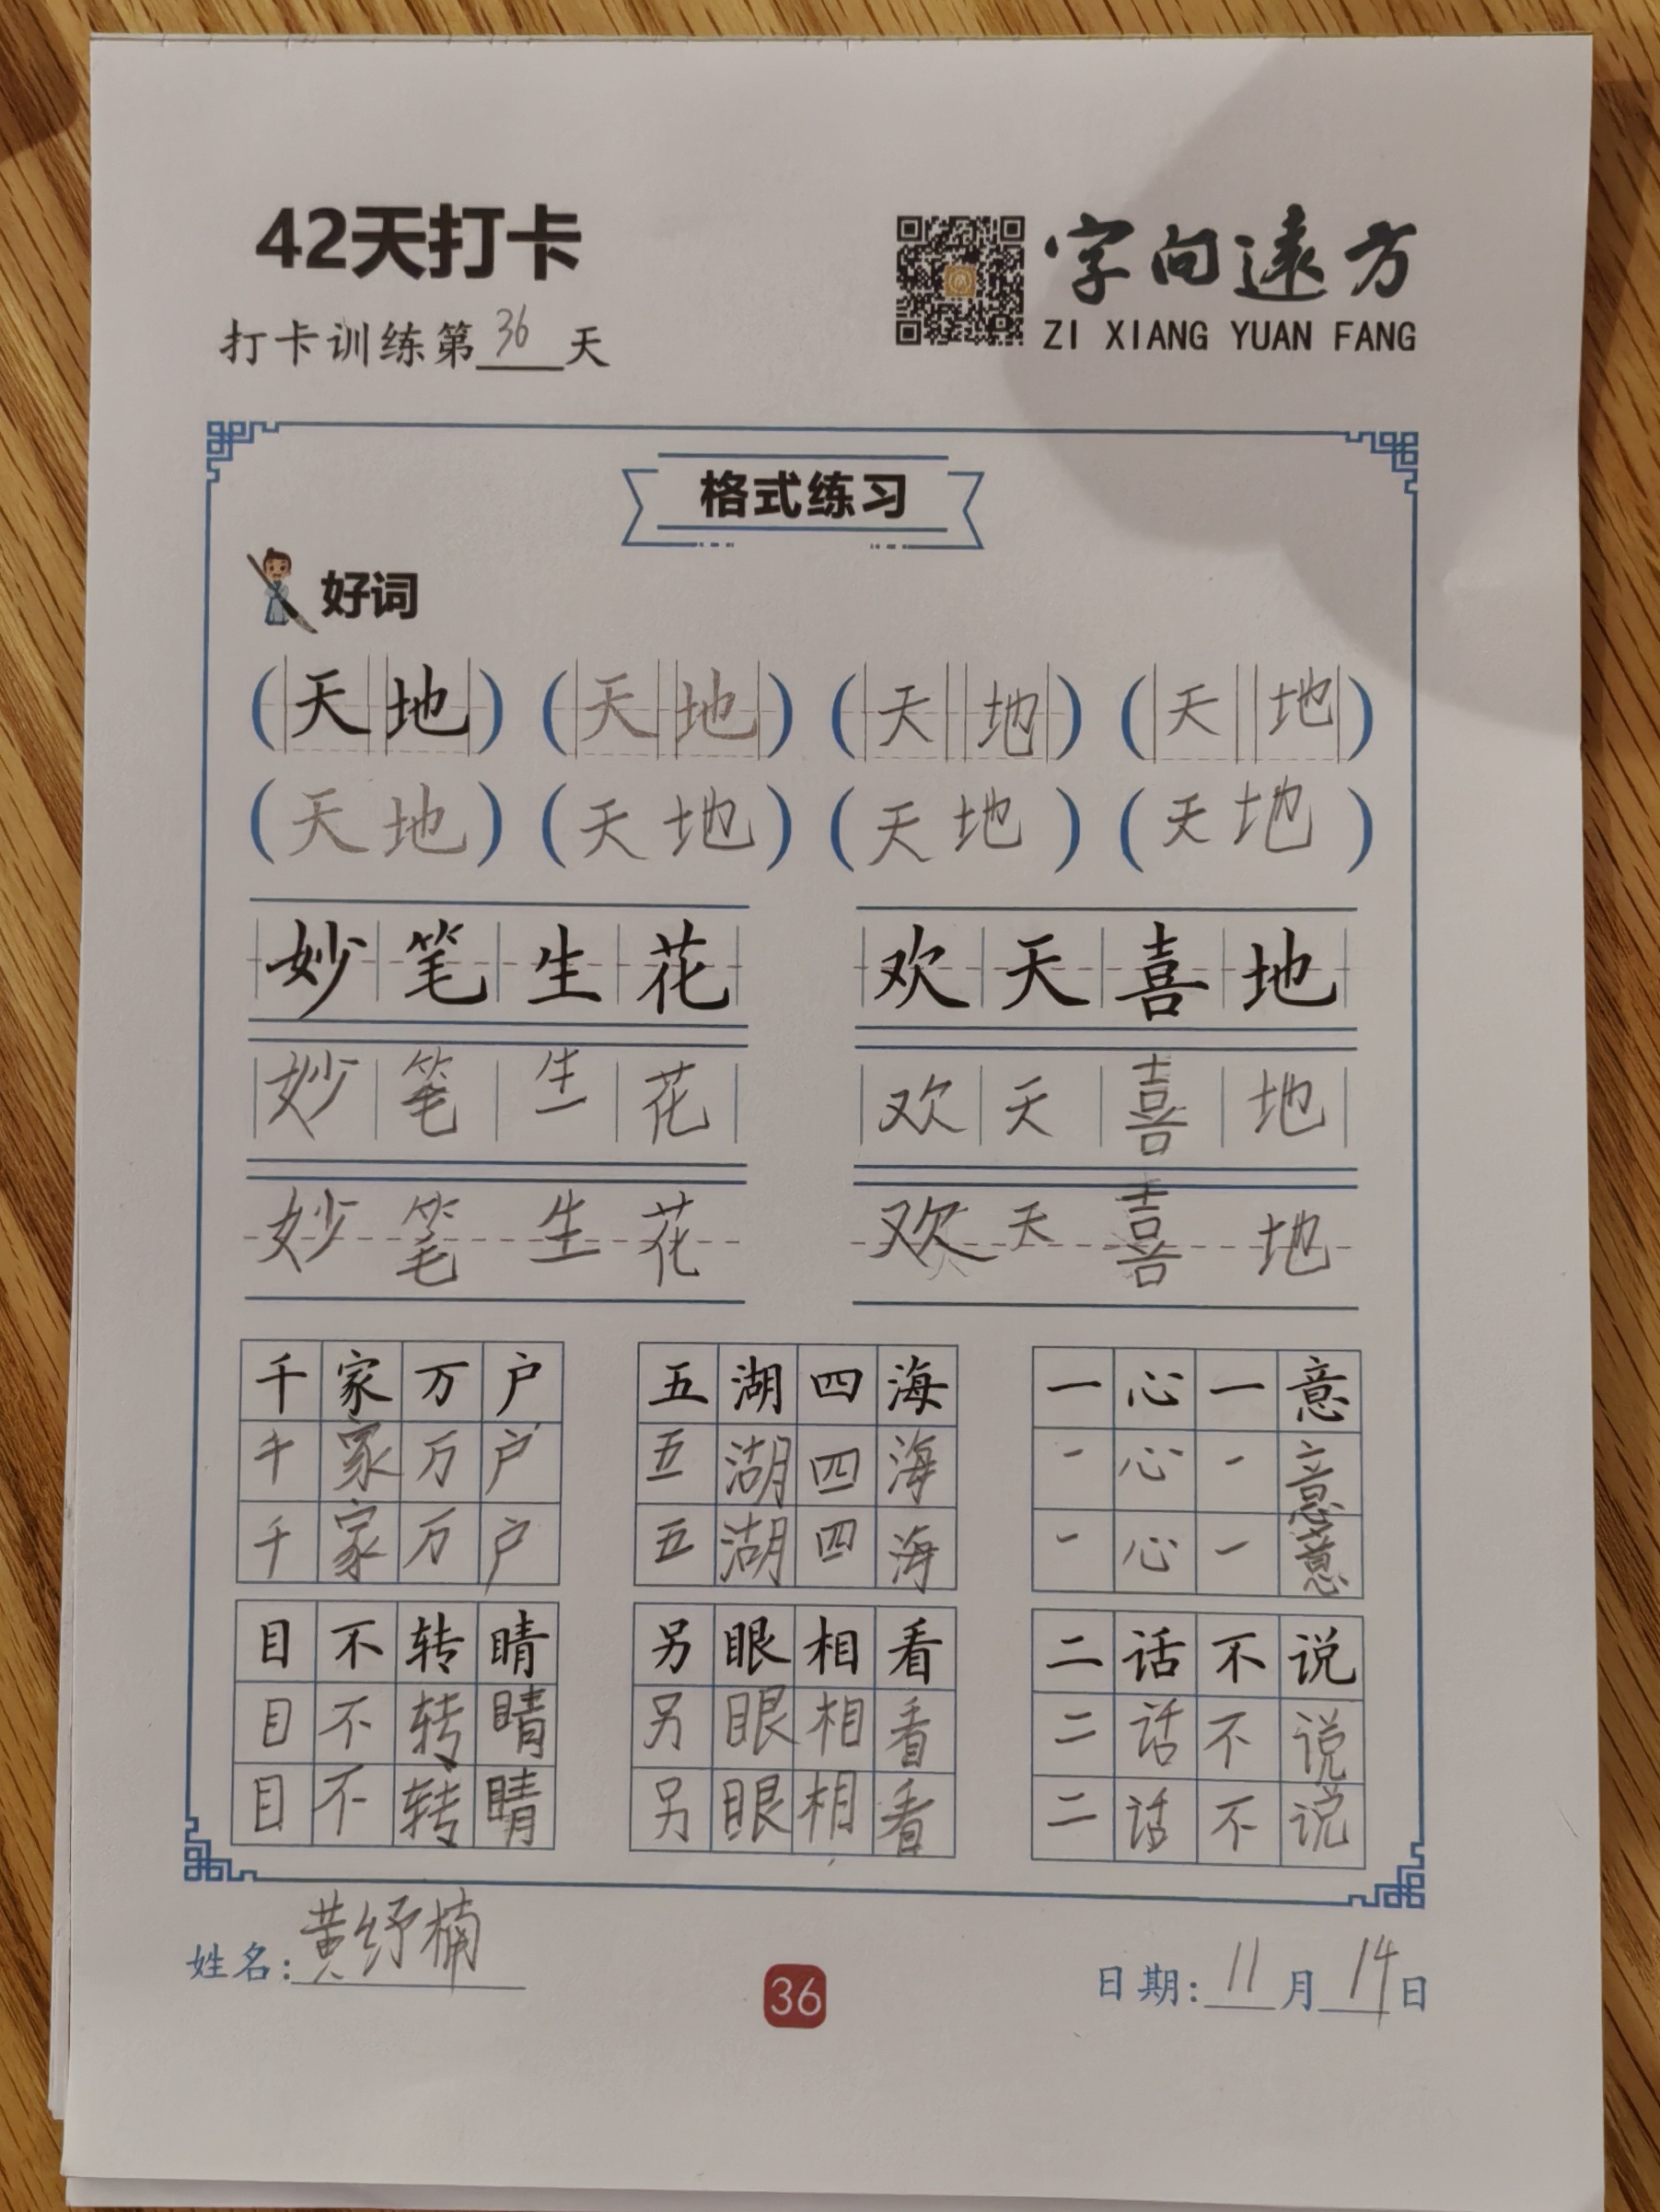 42天打卡
字向遠方
ZI XIANG YUAN FANG
打卡训练第36天
格式练习
好词
(天地) (天地) (天地) (天地)
(天地) (天地) (天地) (天地)
妙笔生花 欢天喜地
妙笔生花 欢天喜地
妙笔生花 欢天喜地
千家万户 五湖四海 一心一意
千家万户 五湖四海 一心一意
千家万户 五湖四海 一心一意
目不转睛 另眼相看 二话不说
目不转睛 另眼相看 二话不说
目不转睛 另眼相看 二话不说
姓名:黄纾楠
36
日期:11月14日